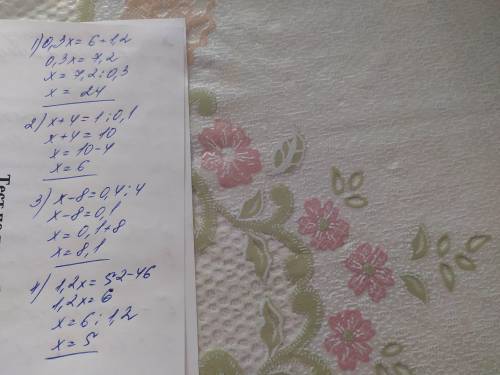 1) 0,3x = 6+1,2
0,3x = 7,2
x = 7,2 : 0,3
x = 24
2) x+4 = 1 : 0,1
x+4 = 10
x = 10-4
x = 6
3) x-8 = 0,4 : 4
x-8 = 0,1
x = 0,1+8
x = 8,1
4) 1,2x = 52-46
1,2x = 6
x = 6 : 1,2
x = 5
Тест